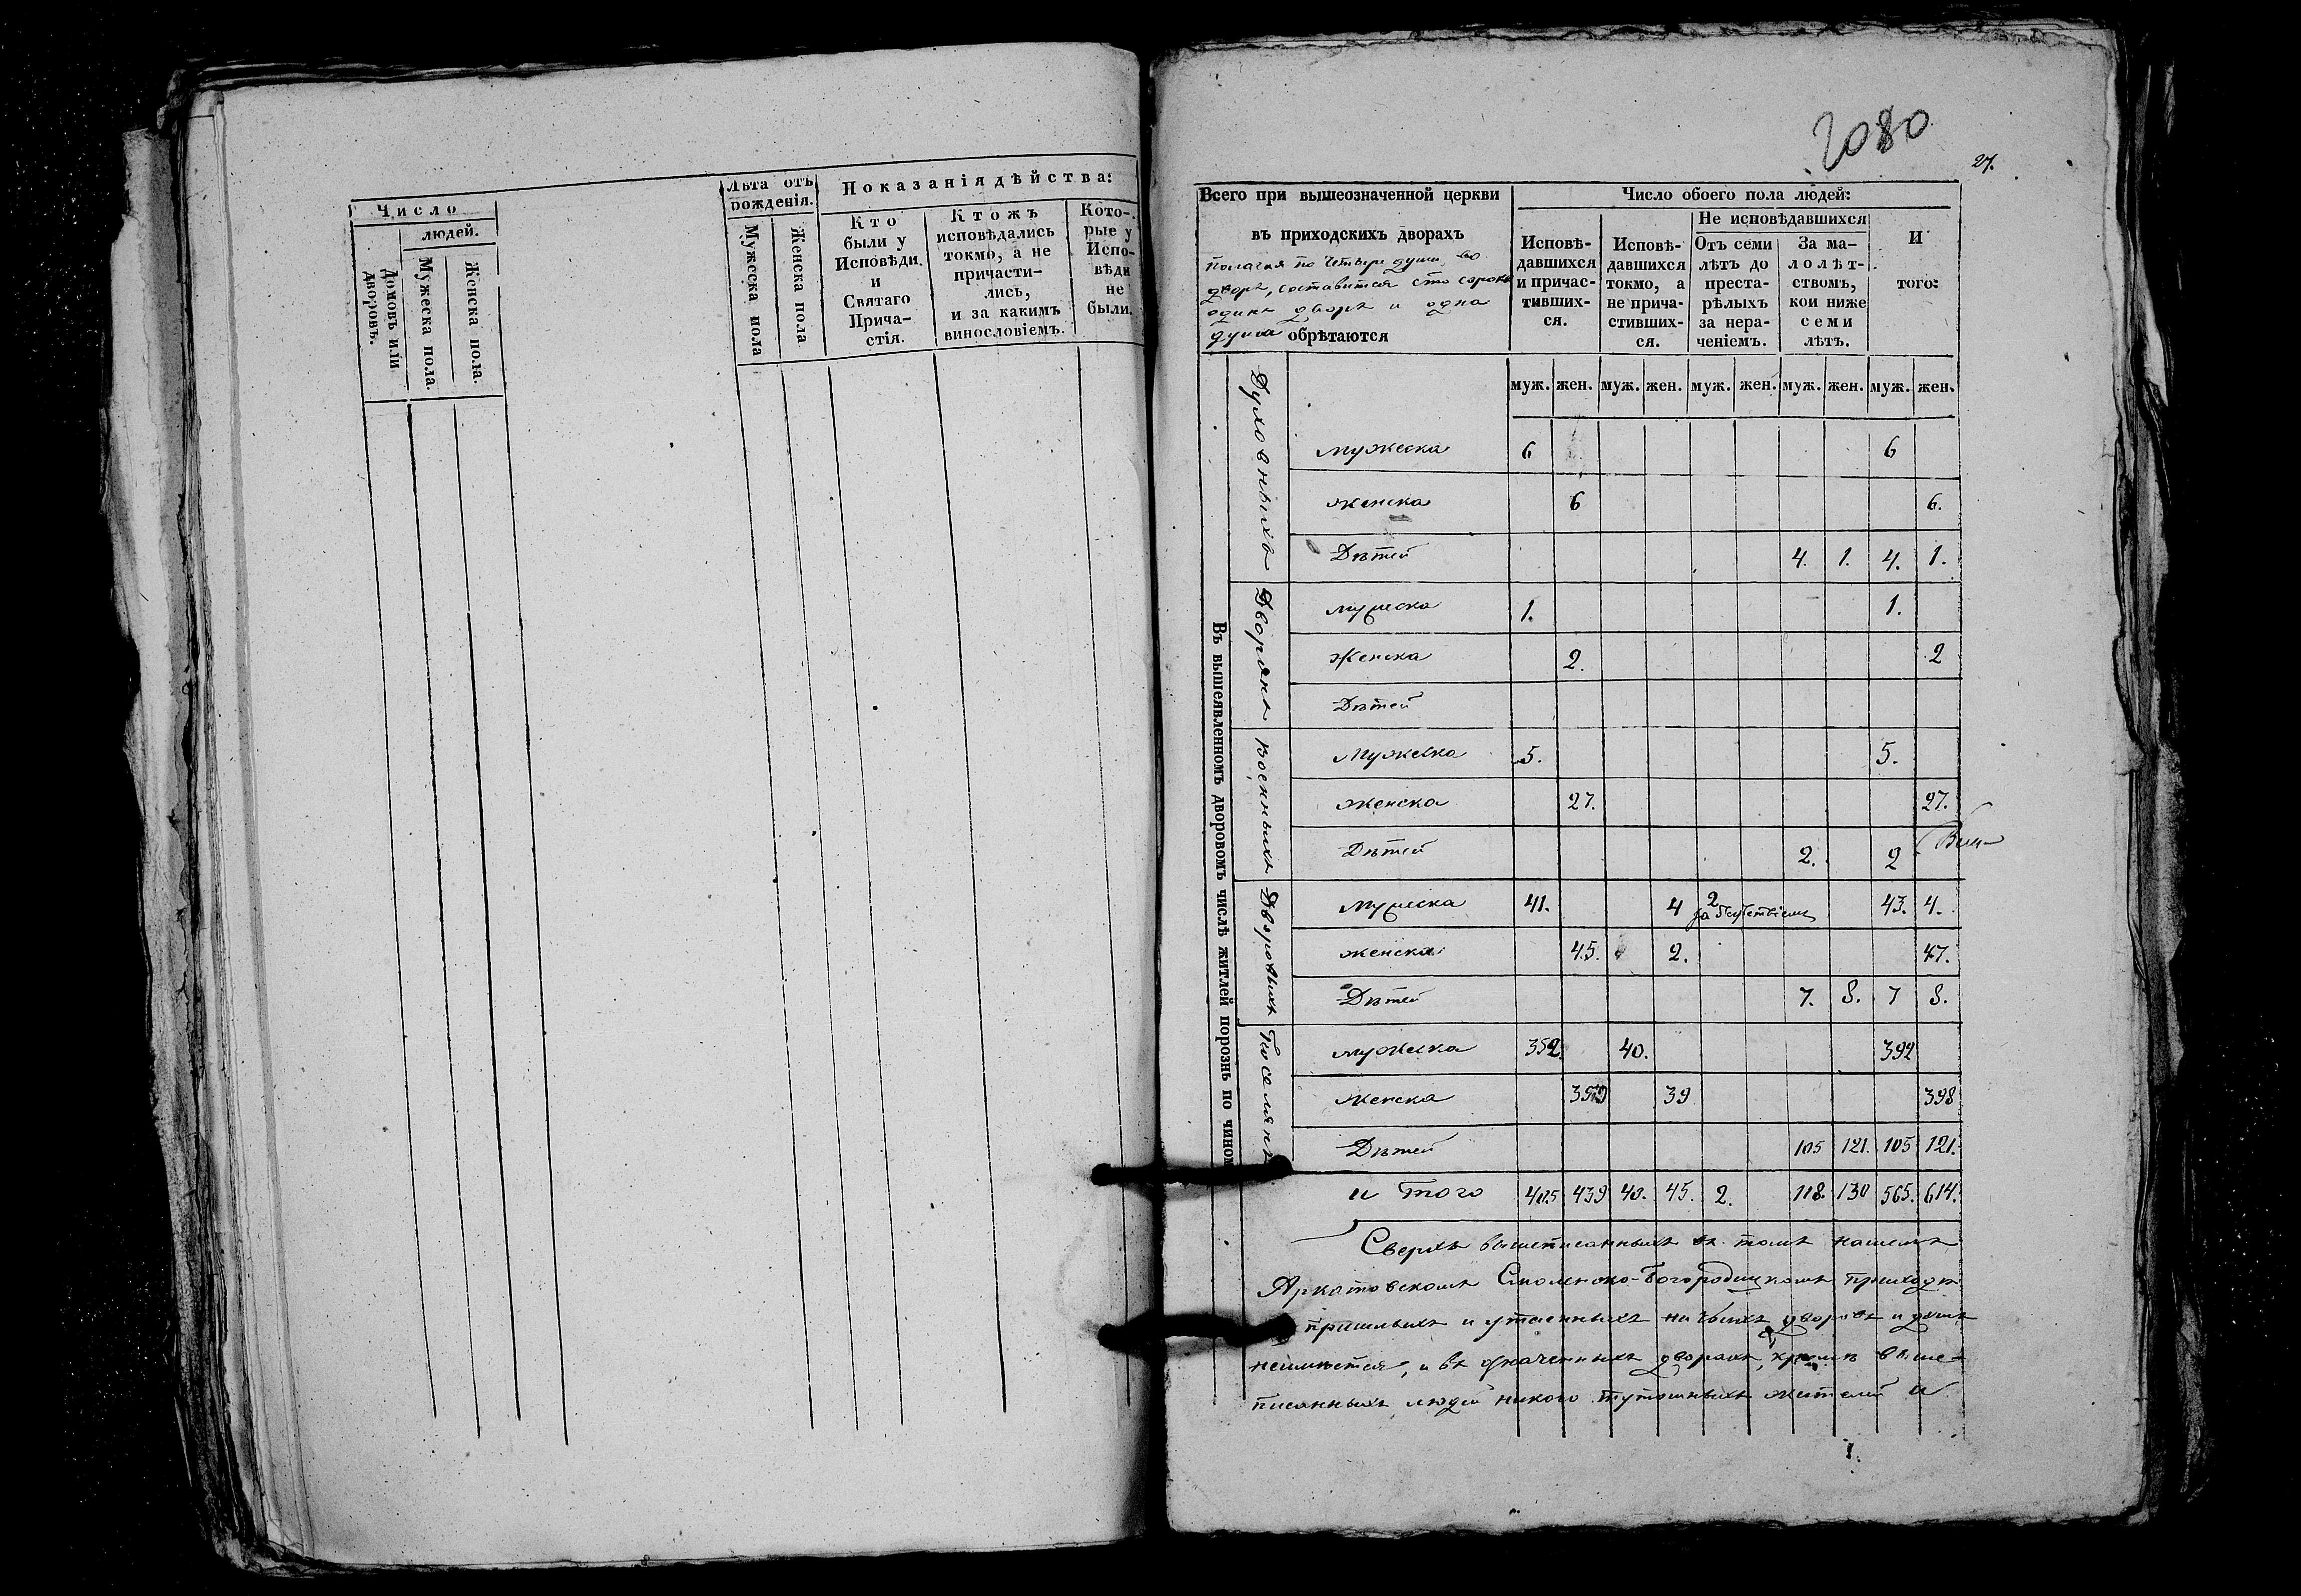 Число
людей.
Домовъ или дворовъ.
Мужеска пола.
Женска пола.
Лѣта отъ рожденія.
Мужеска пола
Женска пола
Показанія дѣйства:
Кто
были у
Исповѣди
и
Святаго
Прича-
стія.
Ктожъ
исповѣдались
токмо, а не
причасти-
лись,
и за какимъ
винословіемъ.
Кото-
рые у
Испо-
вѣди
не
были.
2080
27.
Всего при вышеозначенной церкви
въ приходскихъ дворахъ
полагая по четыре души во
дворѣ, составится сто сорокъ
одинъ дворъ и одна
душа обрѣтаются
Число обоего пола людей:
Исповѣ-
давшихся
и причас-
тивших-
ся.
Исповѣ-
давшихся
токмо, а
не прича-
стивших-
ся.
Не исповѣдавшихся
Отъ семи
лѣтъ до
преста-
рѣлыхъ
за нера-
ченіемъ.
За ма-
лолѣт-
ствомъ,
кои ниже
семи
лѣтъ.
И
того:
муж. жен. муж. жен. муж. жен. муж. жен. муж. жен.
Въ вышеявленномъ дворовомъ числѣ житлей порознь по чиномъ
Духовныхъ
мужеска 6 6
женска 6 6.
Дѣтей 4. 1. 4. 1.
Дворянъ
мужеска 1. 1.
Женска 2. 2
Дѣтей
военныхъ
Мужеска 5. 5.
женска 27. 27.
Дѣтей 2. 2
Дворовыхъ
мужеска 41. 4 2 за отсутствіемъ 43. 4.
женска 45. 2. 47.
Дѣтей 7. 8. 7 8.
Поселянъ
мужеска 352. 40. 392
женска 359 39 398
Дѣтей 105 121. 105 121.
и того 405 439 40. 45. 2. 118. 130 565. 614.
Сверхъ вышеписанныхъ въ томъ нашемъ
Аркатовскомъ Смоленско-Богородицкомъ приходѣ
пришлыхъ и утаенныхъ ни чьихъ дворовъ и душъ
неимѣется, и въ означенныхъ дворахъ, кромѣ выше-
писанныхъ людей никого тутошныхъ жителей и
1.